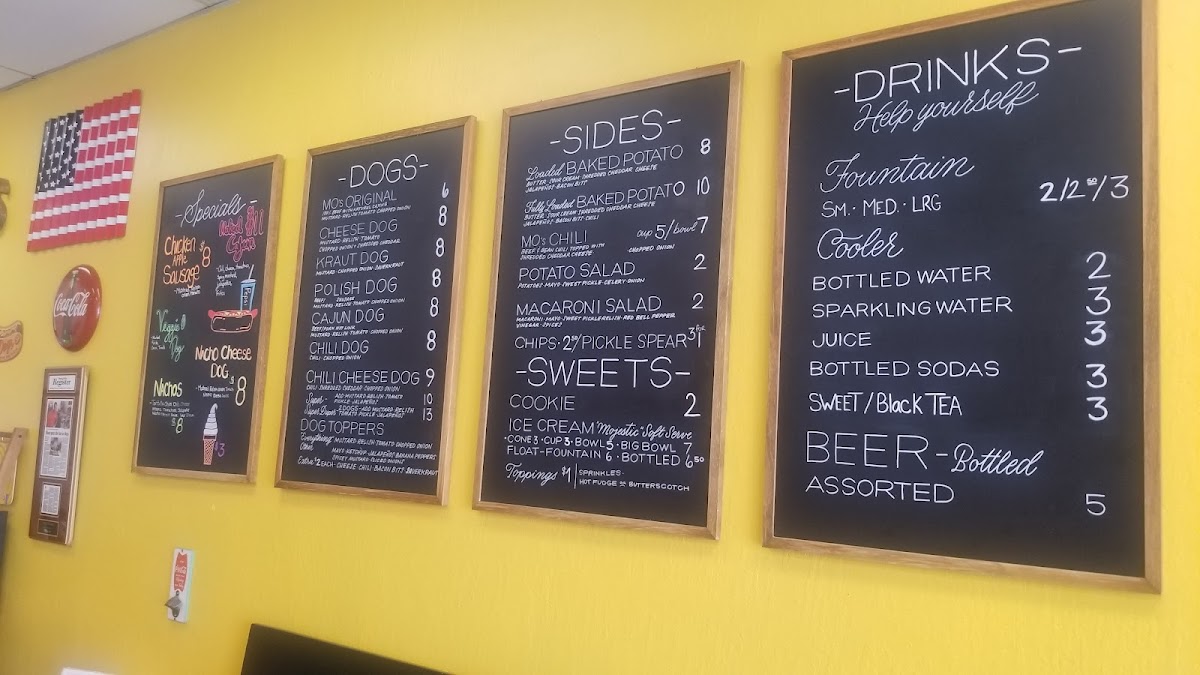 -Specials-
Chicken
Apple
Sausage
$8
Veggie
Dog
Nacho Cheese
DOG
$8
Nachos
$8
$3
Pepsi
Coca-Cola
Register
-DOGS-
MO'S ORIGINAL 6
MUSTARD·RELISH·TOMATO·CHOPPED ONION
CHEESE DOG 8
MUSTARD·RELISH·TOMATO
CHOPPED ONION·SHREDDED CHEDDAR
KRAUT DOG 8
MUSTARD·CHOPPED ONION·SAUERKRAUT
POLISH DOG 8
MUSTARD·RELISH·TOMATO·CHOPPED ONION
CAJUN DOG 8
MUSTARD·RELISH·TOMATO·CHOPPED ONION
CHILI DOG 8
CHILI·CHOPPED ONION
CHILI CHEESE DOG 9
CHILI·SHREDDED CHEDDAR·CHOPPED ONION
Super- ADD MUSTARD·RELISH 10
TOMATO·PICKLE·JALAPEÑO!
Super Duper 2 DOGS-ADD MUSTARD·RELISH 13
TOMATO·PICKLE·JALAPEÑOS!
DOG TOPPERS
"Everything" MUSTARD·RELISH·TOMATO·CHOPPED ONION
Other MAYO·KETCHUP·JALAPEÑOS·BANANA PEPPERS
SPICEY MUSTARD·SLICED ONION
Extra $2 EACH-CHEESE·CHILI·BACON BITS·SAUERKRAUT
-SIDES-
Loaded BAKED POTATO 8
BUTTER·SOUR CREAM·SHREDDED CHEDDAR CHEESE
JALAPEÑOS·BACON BITS
Fully Loaded BAKED POTATO 10
BUTTER·SOUR CREAM·SHREDDED CHEDDAR CHEESE
JALAPEÑOS·BACON BITS·CHILI
MO'S CHILI cup 5/bowl 7
BEEF & BEAN CHILI TOPPED WITH CHOPPED ONION
SHREDDED CHEDDAR CHEESE
POTATO SALAD 2
POTATOES·MAYO·SWEET PICKLE·CELERY·ONION
MACARONI SALAD 2
MACARONI·MAYO·SWEET PICKLE·RELISH·RED BELL PEPPER
VINEGAR·SPICES
CHIPS·2/PICKLE SPEAR 3 FOR 1
-SWEETS-
COOKIE 2
ICE CREAM "Majestic" Soft Serve
·CONE 3·CUP 3·BOWL 5·BIG BOWL 7
FLOAT-FOUNTAIN 6·BOTTLED 6.50
Toppings $1 SPRINKLES·
HOT FUDGE OR BUTTERSCOTCH
-DRINKS-
Help yourself
Fountain
SM.·MED.·LRG 2/2.50/3
Cooler
BOTTLED WATER 2
SPARKLING WATER 3
JUICE 3
BOTTLED SODAS 3
SWEET/Black TEA 3
BEER-Bottled
ASSORTED 5